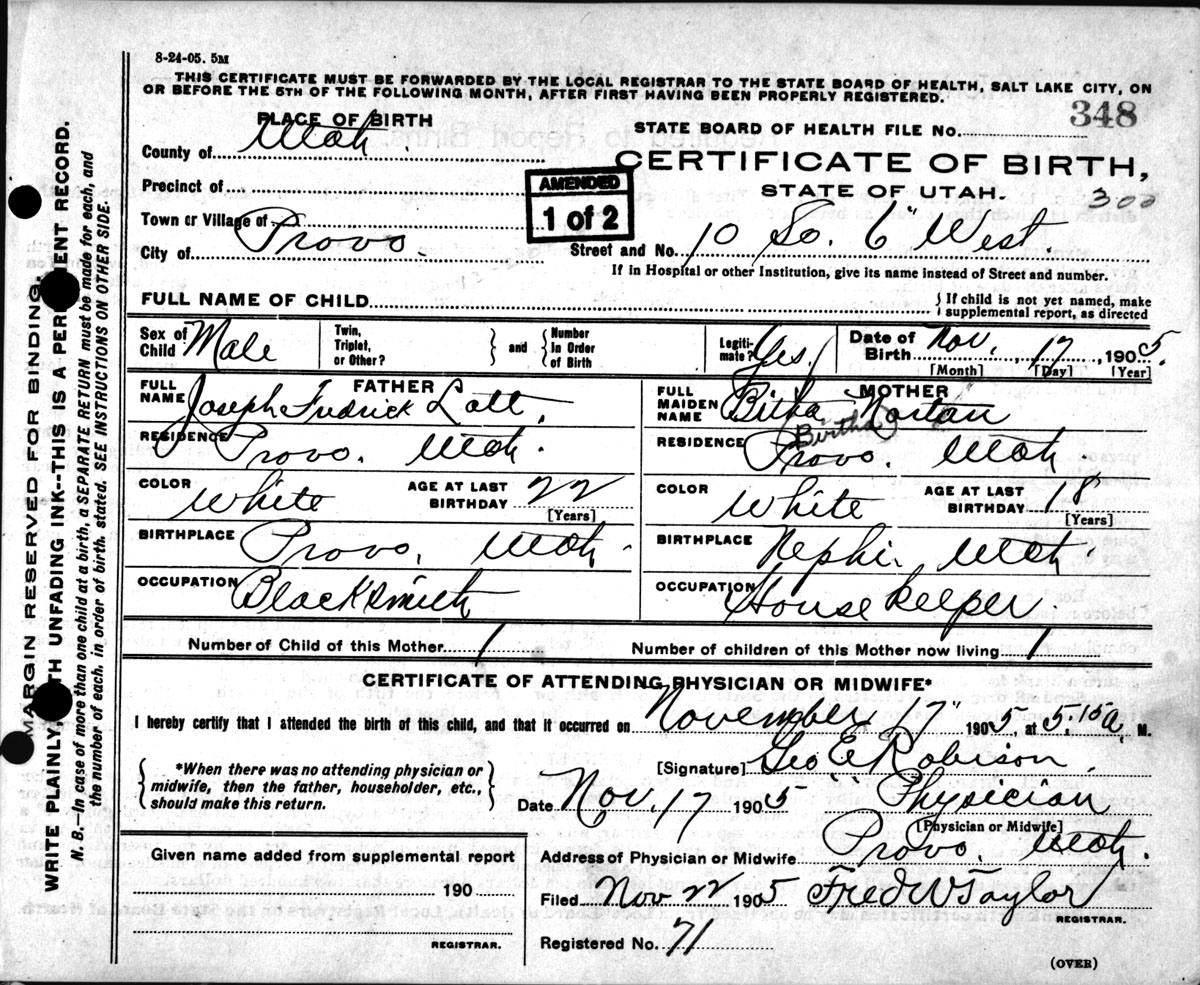 8-24-05. 5M
THIS CERTIFICATE MUST BE FORWARDED BY THE LOCAL REGISTRAR TO THE STATE BOARD OF HEALTH, SALT LAKE CITY, ON
OR BEFORE THE 5TH OF THE FOLLOWING MONTH, AFTER FIRST HAVING BEEN PROPERLY REGISTERED.
PLACE OF BIRTH
STATE BOARD OF HEALTH FILE No. 348
County of Utah.
CERTIFICATE OF BIRTH,
STATE OF UTAH.
300
Precinct of
AMENDED
1 of 2
Town or Village of
City of Provo.
Street and No. 10 So. 6" West.
If in Hospital or other Institution, give its name instead of Street and number.
FULL NAME OF CHILD
If child is not yet named, make
supplemental report, as directed
Sex of Child Male
Twin, Triplet, or Other?
and
Number In Order of Birth
Legitimate? Yes.
Date of Birth Nov. 17, 1905.
[Month] [Day] [Year]
FATHER
FULL NAME Joseph Fredrick Lott.
MOTHER
FULL MAIDEN NAME Birtha Nortan
Birtha
RESIDENCE Provo. Utah.
RESIDENCE Provo. Utah.
COLOR White
AGE AT LAST BIRTHDAY 22
[Years]
COLOR White
AGE AT LAST BIRTHDAY 18
[Years]
BIRTHPLACE Provo, Utah.
BIRTHPLACE Nephi. Utah.
OCCUPATION Blacksmith
OCCUPATION House keeper.
Number of Child of this Mother 1
Number of children of this Mother now living 1
CERTIFICATE OF ATTENDING PHYSICIAN OR MIDWIFE*
I hereby certify that I attended the birth of this child, and that it occurred on November 17" 1905, at 5.15 a, M.
*When there was no attending physician or
midwife, then the father, householder, etc.,
should make this return.
[Signature] Geo E Robison.
Date Nov. 17 1905 Physician
[Physician or Midwife]
Given name added from supplemental report
190
REGISTRAR.
Address of Physician or Midwife Provo. Utah.
Filed Nov 22 1905 Fred W Taylor
REGISTRAR.
Registered No. 71
(OVER)
MARGIN RESERVED FOR BINDING.
WRITE PLAINLY, WITH UNFADING INK--THIS IS A PERMENT RECORD.
N. B.—In case of more than one child at a birth, a SEPARATE RETURN must be made for each, and
the number of each, in order of birth, stated. SEE INSTRUCTIONS ON OTHER SIDE.